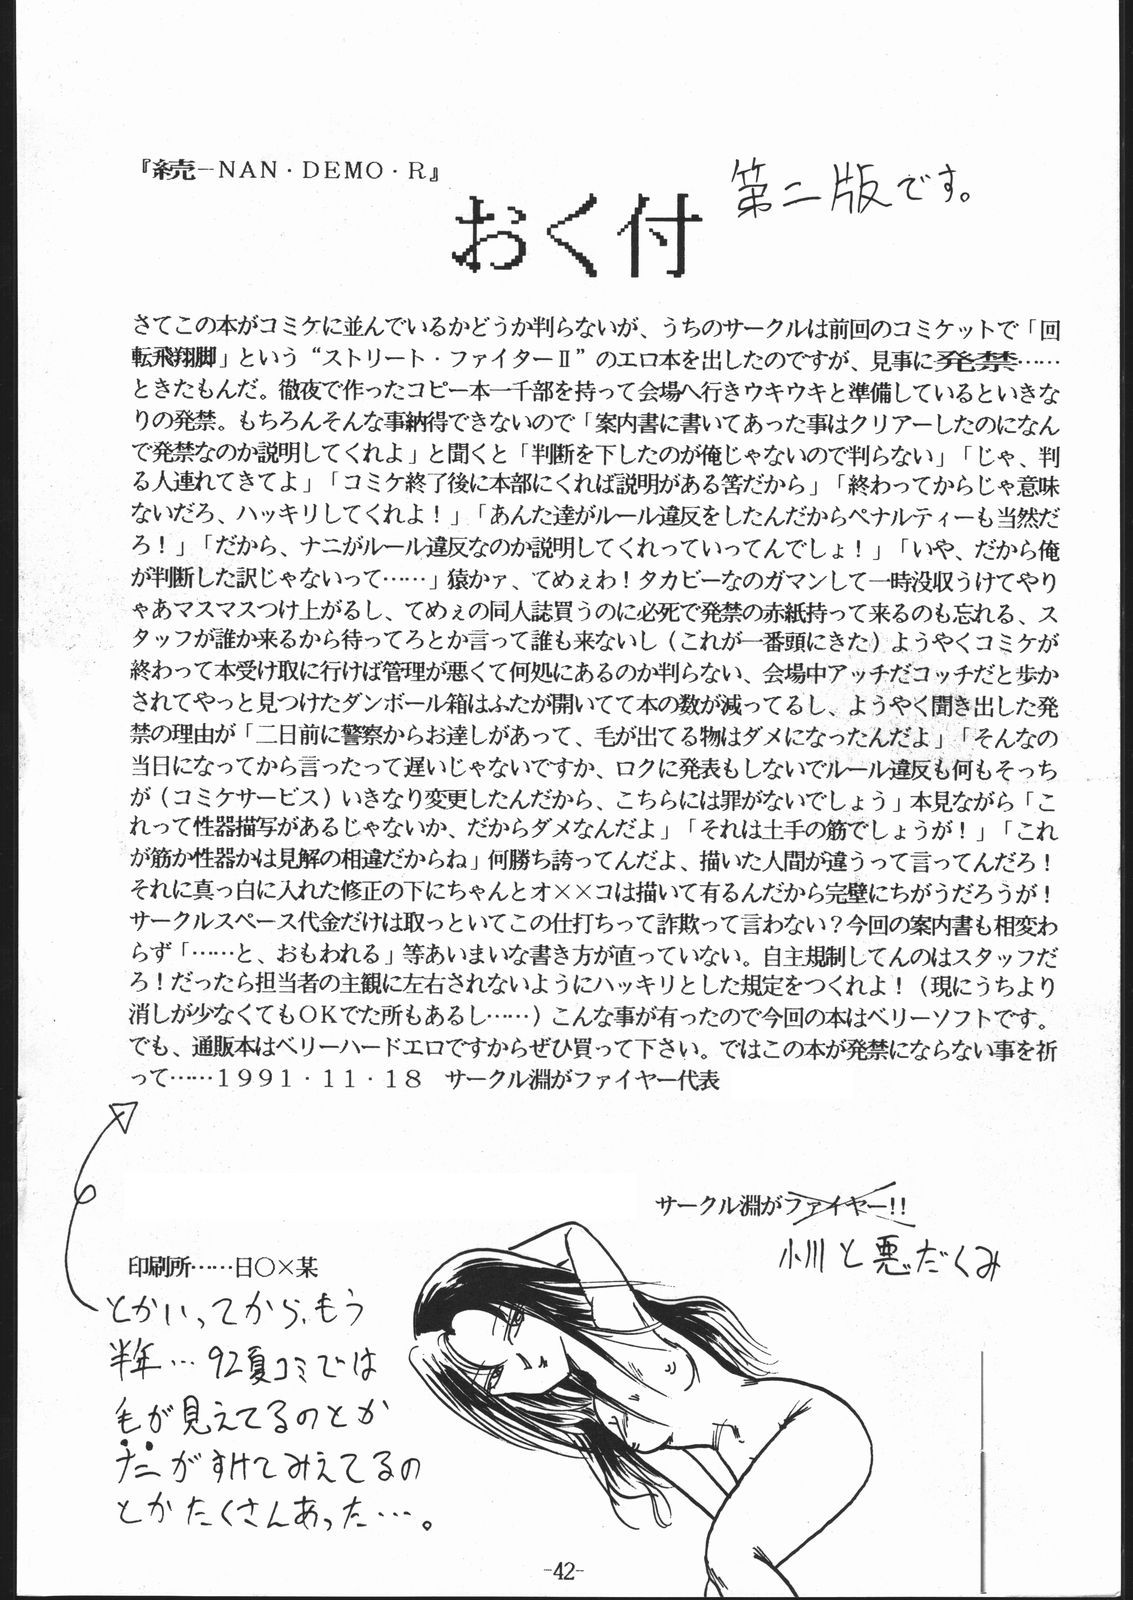 『続－NAN・DEMO・R』
おく付
第二版です。
さてこの本がコミケに並んでいるかどうか判らないが、うちのサークルは前回のコミケットで「回
転飛翔脚」という“ストリート・ファイターⅡ”のエロ本を出したのですが、見事に発禁……
ときたもんだ。徹夜で作ったコピー本一千部を持って会場へ行きウキウキと準備しているといきな
りの発禁。もちろんそんな事納得できないので「案内書に書いてあった事はクリアーしたのになん
で発禁なのか説明してくれよ」と聞くと「判断を下したのが俺じゃないので判らない」「じゃ、判
る人連れてきてよ」「コミケ終了後に本部にくれば説明がある筈だから」「終わってからじゃ意味
ないだろ、ハッキリしてくれよ！」「あんた達がルール違反をしたんだからペナルティーも当然だ
ろ！」「だから、ナニがルール違反なのか説明してくれっていってんでしょ！」「いや、だから俺
が判断した訳じゃないって……」猿かァ、てめぇわ！タカビーなのガマンして一時没収うけてやり
ゃあマスマスつけ上がるし、てめぇの同人誌買うのに必死で発禁の赤紙持って来るのも忘れる、ス
タッフが誰か来るから待ってろとか言って誰も来ないし（これが一番頭にきた）ようやくコミケが
終わって本受け取に行けば管理が悪くて何処にあるのか判らない、会場中アッチだコッチだと歩か
されてやっと見つけたダンボール箱はふたが開いてて本の数が減ってるし、ようやく聞き出した発
禁の理由が「二日前に警察からお達しがあって、毛が出てる物はダメになったんだよ」「そんなの
当日になってから言ったって遅いじゃないですか、ロクに発表もしないでルール違反も何もそっち
が（コミケサービス）いきなり変更したんだから、こちらには罪がないでしょう」本見ながら「こ
れって性器描写があるじゃないか、だからダメなんだよ」「それは土手の筋でしょうが！」「これ
が筋か性器かは見解の相違だからね」何勝ち誇ってんだよ、描いた人間が違うって言ってんだろ！
それに真っ白に入れた修正の下にちゃんとオ××コは描いて有るんだから完壁にちがうだろうが！
サークルスペース代金だけは取っといてこの仕打ちって詐欺って言わない？今回の案内書も相変わ
らず「……と、おもわれる」等あいまいな書き方が直っていない。自主規制してんのはスタッフだ
ろ！だったら担当者の主観に左右されないようにハッキリとした規定をつくれよ！（現にうちより
消しが少なくてもOKでた所もあるし……）こんな事が有ったので今回の本はベリーソフトです。
でも、通販本はベリーハードエロですからぜひ買って下さい。ではこの本が発禁にならない事を祈
って……1991・11・18　サークル淵がファイヤー代表
サークル淵がファイヤー!!
小川と悪だくみ
印刷所……日○×某
とかいってから、もう
半年…92夏コミでは
毛が見えてるのとか
ナニがすけてみえてるの
とかたくさんあった…。
-42-